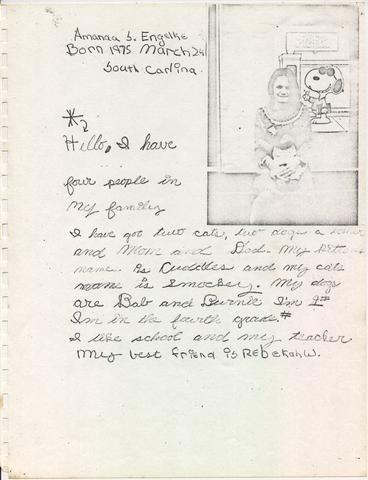 Amanda S. Engelke
Born 1975 March 24
South Carlina.
Hello, I have
four people in
my family
I have got two cats, two dogs a
and Mom and Dad. My
name is Cuddles and my cats
name is Smockey. My dogs
are Bab and Burnie I'm 9#
I'm in the fourth grade.#
I like school and my teacher
My best friend is Rebekah W.